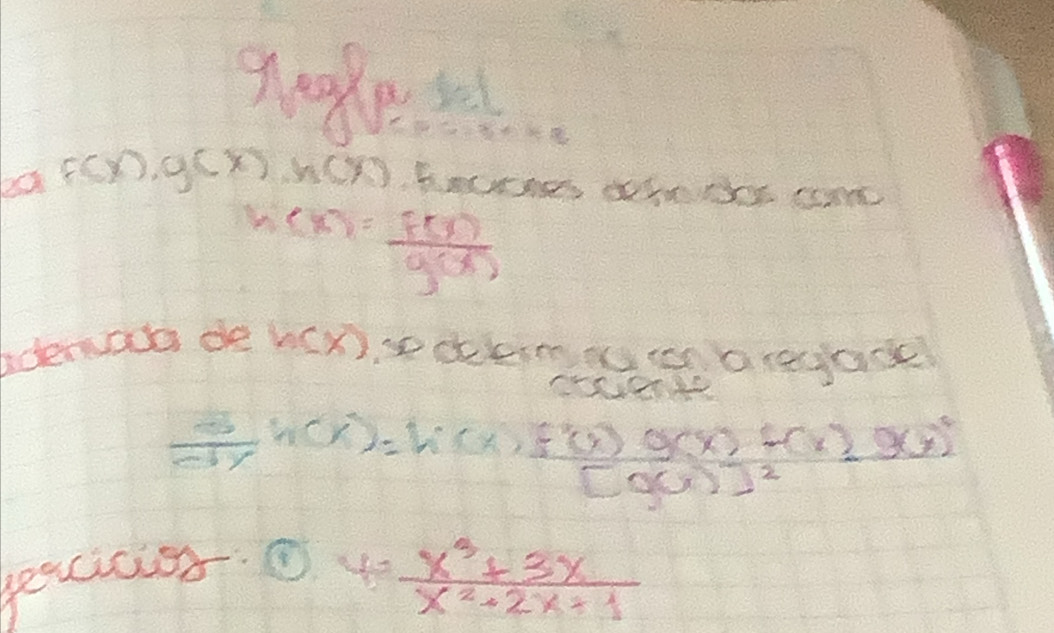 Regla del
cociente
ea f(x), g(x), h(x) funciones definidas como
h(x) = f(x) / g(x)
a derivada de h(x), se determina con la regla del
cociente
d/dx h(x) = h'(x) f'(x) g(x) - f(x) g(x)' / [g(x)]²
jercicios: ① y = x³ + 3x / x² + 2x + 1